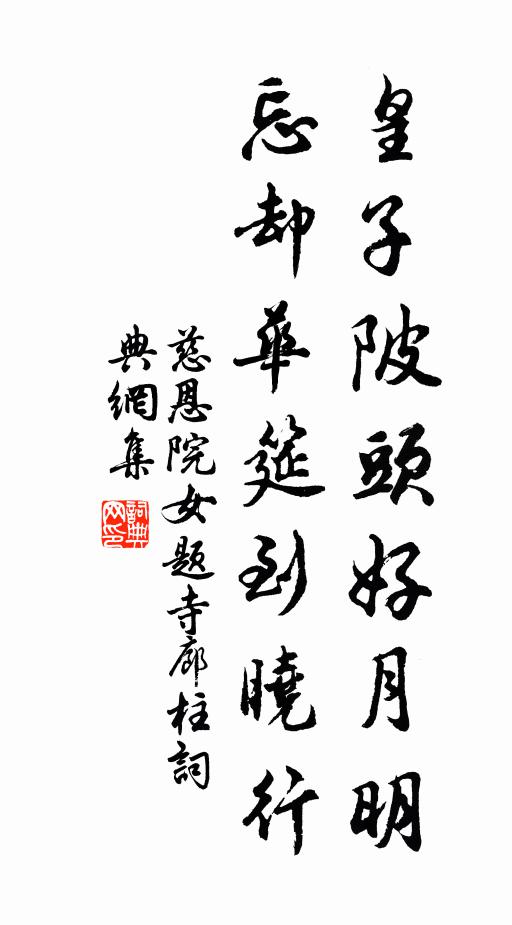 皇子陂頭好月明
忘却華筵到曉行
慈恩院女題寺廊柱詞
典網集
詞典网印